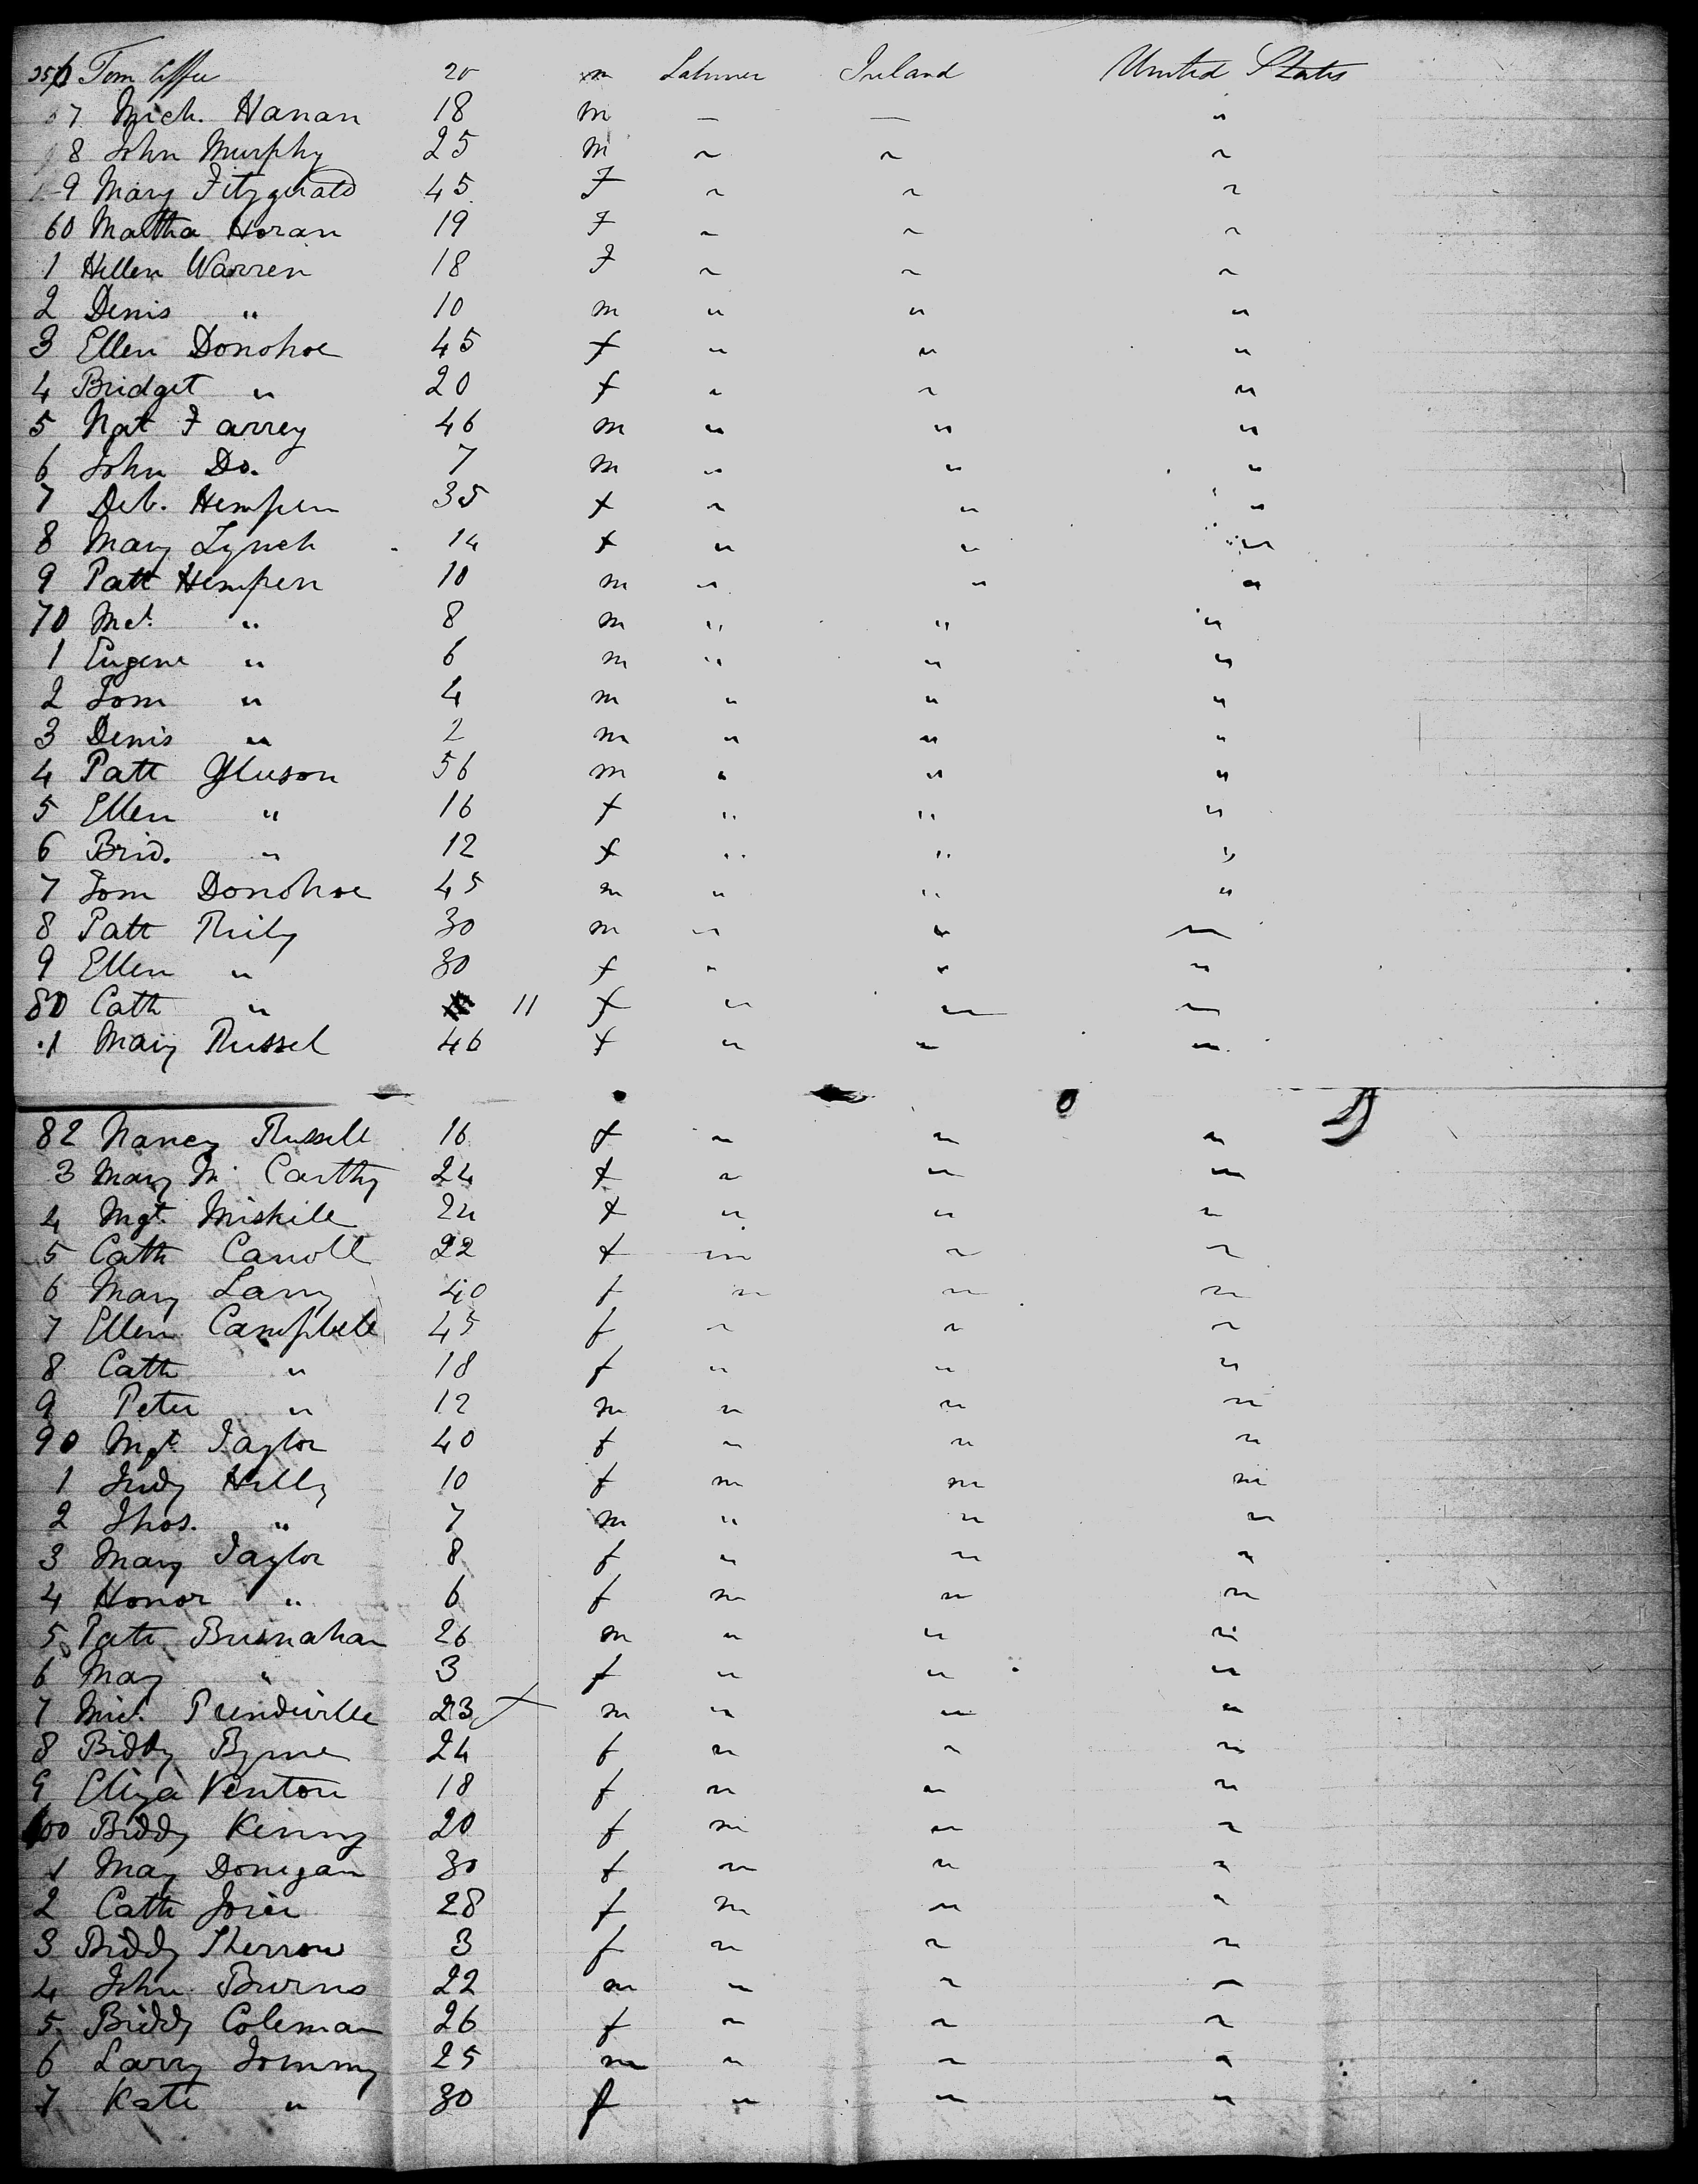 356 Tom 20 m Labourer Ireland United States
7 Mich. Hanan 18 m — — "
8 John Murphy 25 m " " "
9 Mary Fitzgerald 45 F " " "
60 Martha Horan 19 F " " "
1 Hellen Warren 18 F " " "
2 Denis " 10 m " " "
3 Ellen Donohoe 45 f " " "
4 Bridget " 20 f " " "
5 Nat Farrey 46 m " " "
6 John Do. 7 m " " "
7 Deb. Hempen 35 f " " "
8 Mary Lynch 14 f " " "
9 Patt Hempen 10 m " " "
70 Mcl. " 8 m " " "
1 Eugene " 6 m " " "
2 Tom " 4 m " " "
3 Denis " 2 m " " "
4 Patt Gleeson 56 m " " "
5 Ellen " 16 f " " "
6 Brid. " 12 f " " "
7 Tom Donohoe 45 m " " "
8 Patt Riily 30 m " " "
9 Ellen " 30 f " " "
80 Cath " 11 f " " "
1 Mary Russel 46 f " " "
82 Nancy Russell 16 f " " "
3 Mary Mc Carthy 24 f " " "
4 Mgt. Miskill 24 f " " "
5 Cath Caroll 22 f " " "
6 Mary Lary 40 f " " "
7 Ellen Campbell 45 f " " "
8 Cath " 18 f " " "
9 Peter " 12 m " " "
90 Mgt. Taylor 40 f " " "
1 Judy Hilly 10 f " " "
2 Thos. " 7 m " " "
3 Mary Taylor 8 f " " "
4 Honor " 6 f " " "
5 Patt Busnahan 26 m " " "
6 May " 3 f " " "
7 Mic. Prendiville 23 m " " "
8 Biddy Byrne 24 f " " "
9 Eliza Venton 18 f " " "
400 Biddy Kenny 20 f " " "
1 May Donigan 30 f " " "
2 Cath 28 f " " "
3 Biddy Sherrow 3 f " " "
4 John Burns 22 m " " "
5 Biddy Coleman 26 f " " "
6 Larry Tommy 25 m " " "
7 Kate " 30 f " " "